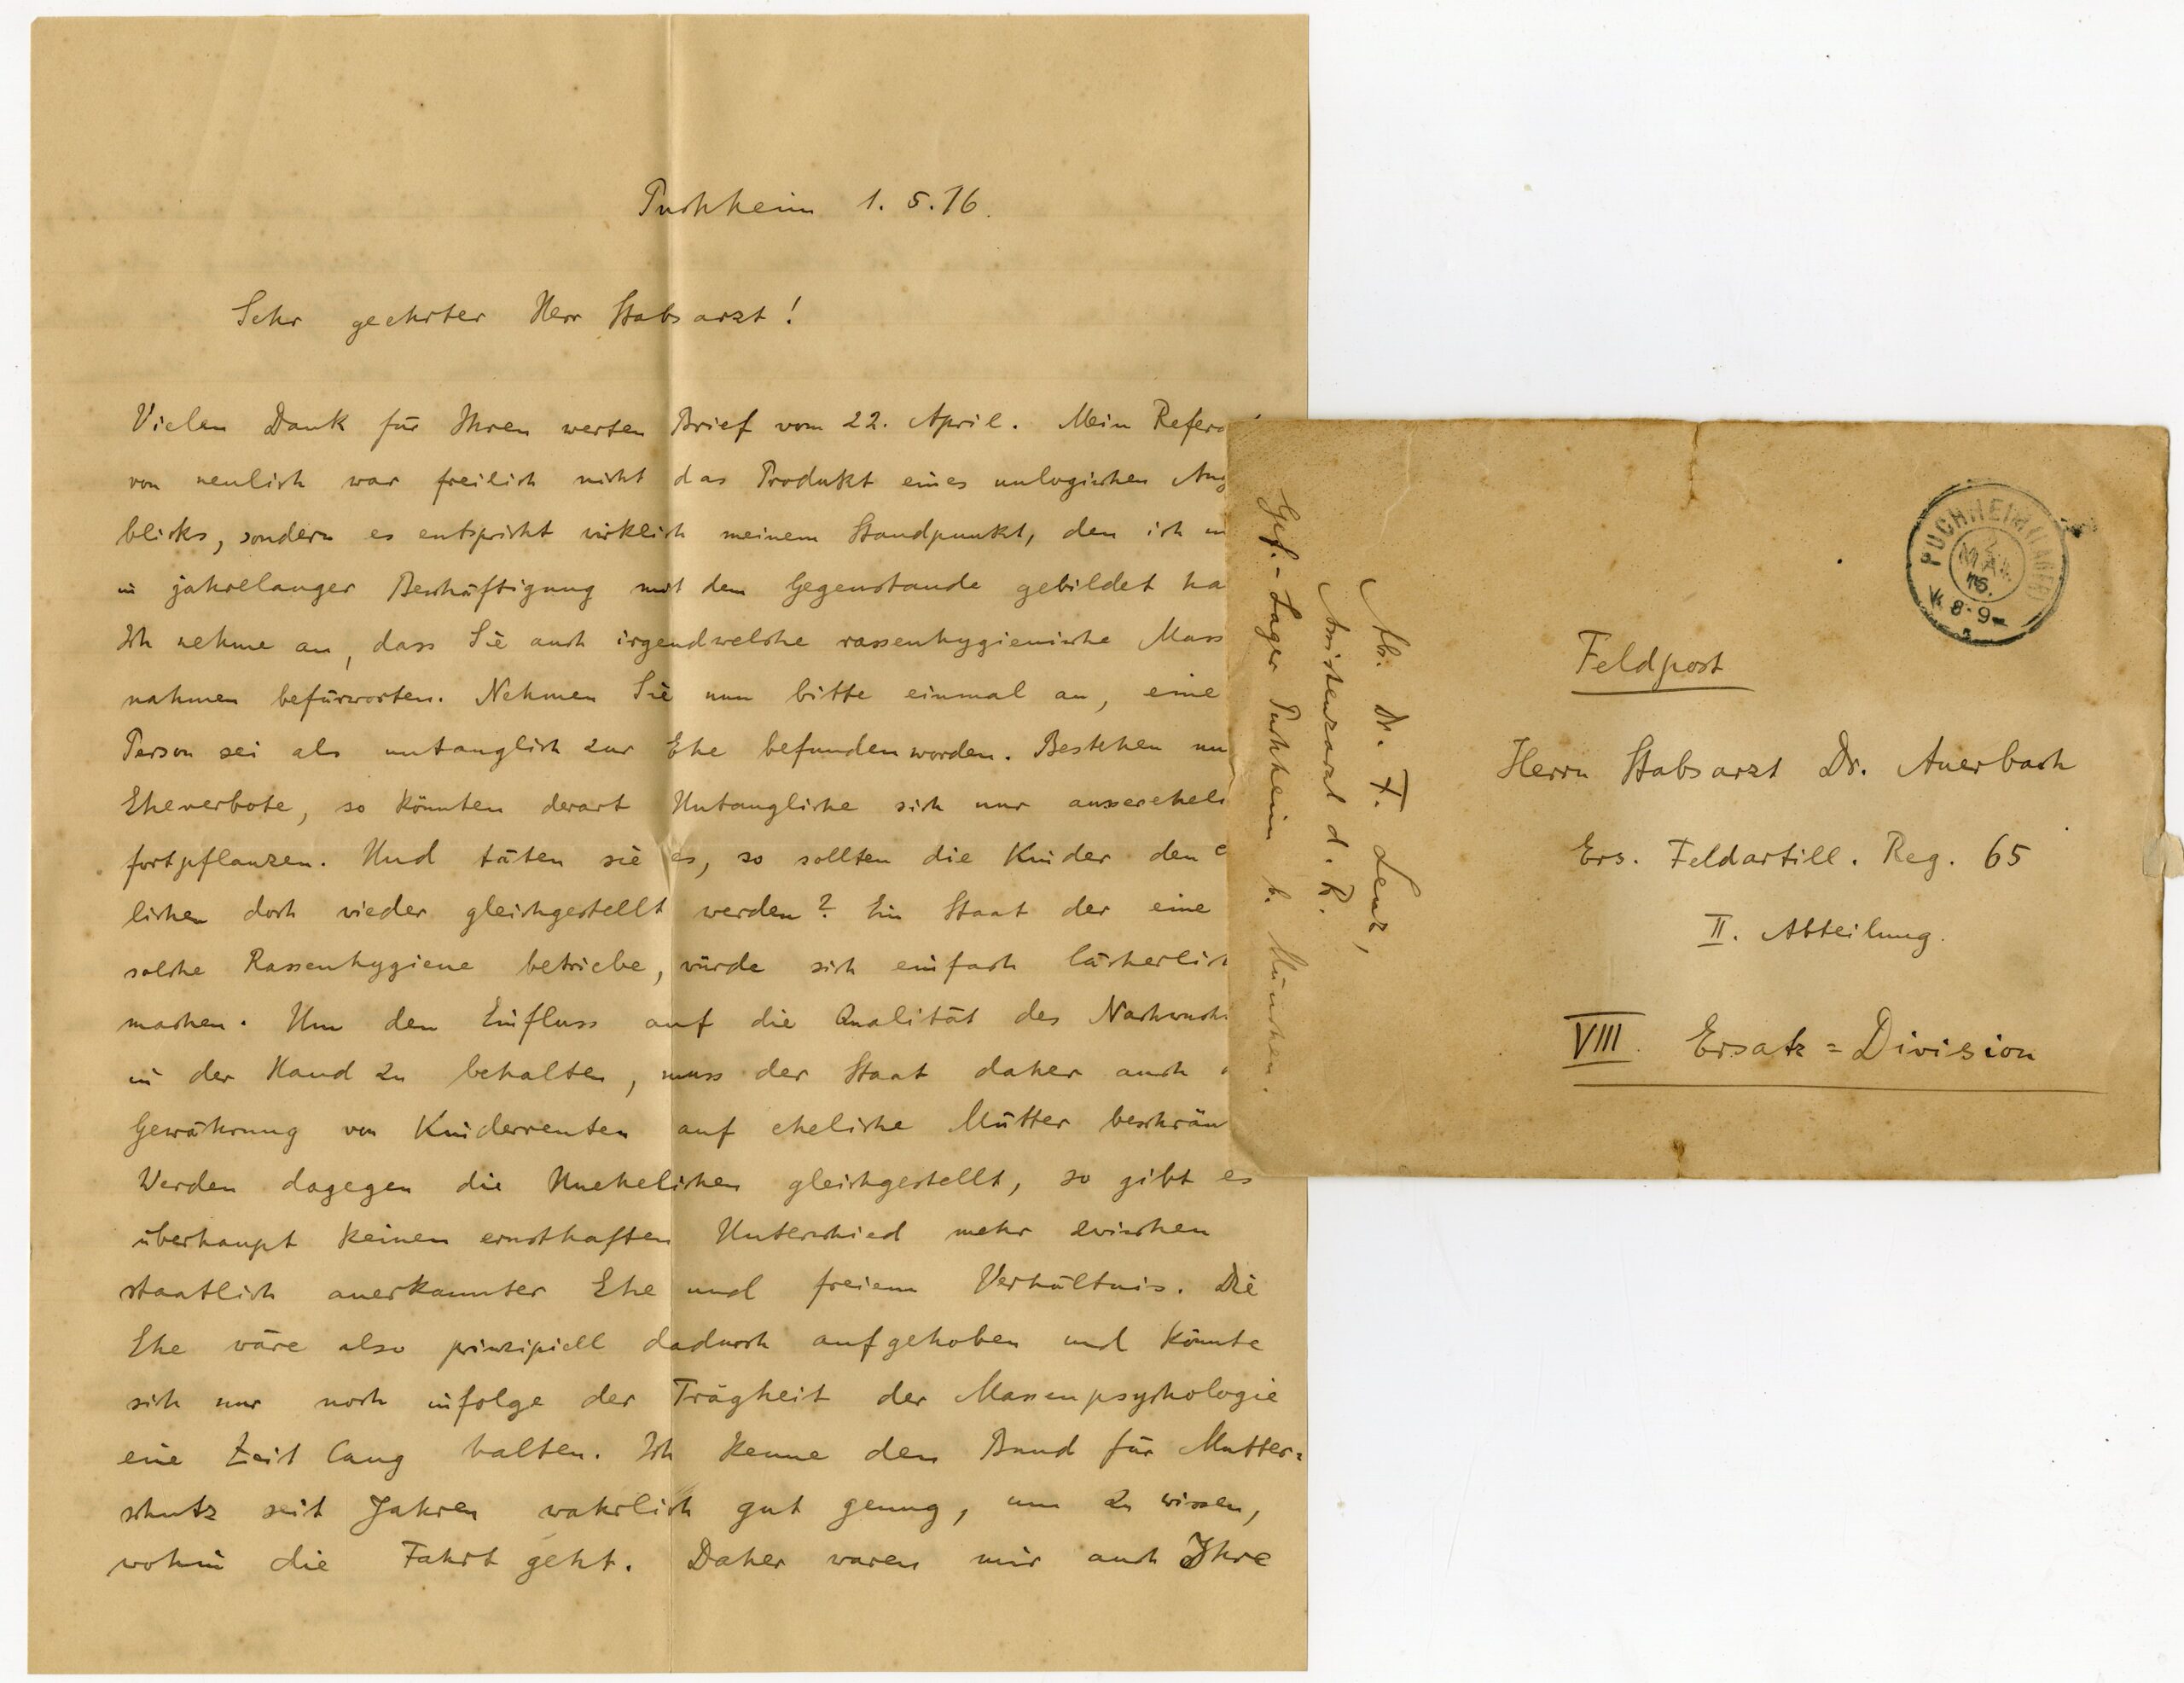 Puchheim 1. 5. 16.
Sehr geehrter Herr Stabsarzt!
Vielen Dank für Ihren werten Brief vom 22. April. Mein Refera
von neulich war freilich nicht das Produkt eines unlogischen Aug
blicks, sondern es entspricht wirklich meinem Standpunkt, den ich m
in jahrelanger Beschäftigung mit dem Gegenstande gebildet ha
Ich nehme an, dass Sie auch irgendwelche rassenhygienische Mass
nahmen befürworten. Nehmen Sie nun bitte einmal an, eine
Person sei als untauglich zur Ehe befunden worden. Bestehen nu
Eheverbote, so könnten derart Untaugliche sich nur ausserehel
fortpflanzen. Und täten sie es, so sollten die Kinder den e
lichen doch wieder gleichgestellt werden? Ein Staat der eine
solche Rassenhygiene betriebe, würde sich einfach lächerlich
machen. Um den Einfluss auf die Qualität des Nachwuchs
in der Hand zu behalten, muss der Staat daher auch
Gewährung von Kinderrenten auf eheliche Mütter beschrän
Werden dagegen die Unehelichen gleichgestellt, so gibt es
überhaupt keinen ernsthaften Unterschied mehr zwischen
staatlich anerkannter Ehe und freiem Verhältnis. Die
Ehe wäre also prinzipiell dadurch aufgehoben und könnte
sich nur noch infolge der Trägheit der Massenpsychologie
eine Zeit lang halten. Ich kenne den Bund für Mutter=
schutz seit Jahren wahrlich gut genug, um zu wissen,
wohin die Fahrt geht. Daher waren mir auch Ihre
Ab. Dr. F. Lenz,
Assistenzarzt d. R.
Gef.-Lager Puchheim b. München.
PUCHHEIM (LAGER)
2
MAI
16.
V. 8-9
Feldpost
Herrn Stabsarzt Dr. Auerbach
Ers. Feldartill. Reg. 65
II. Abteilung.
VIII. Ersatz=Division